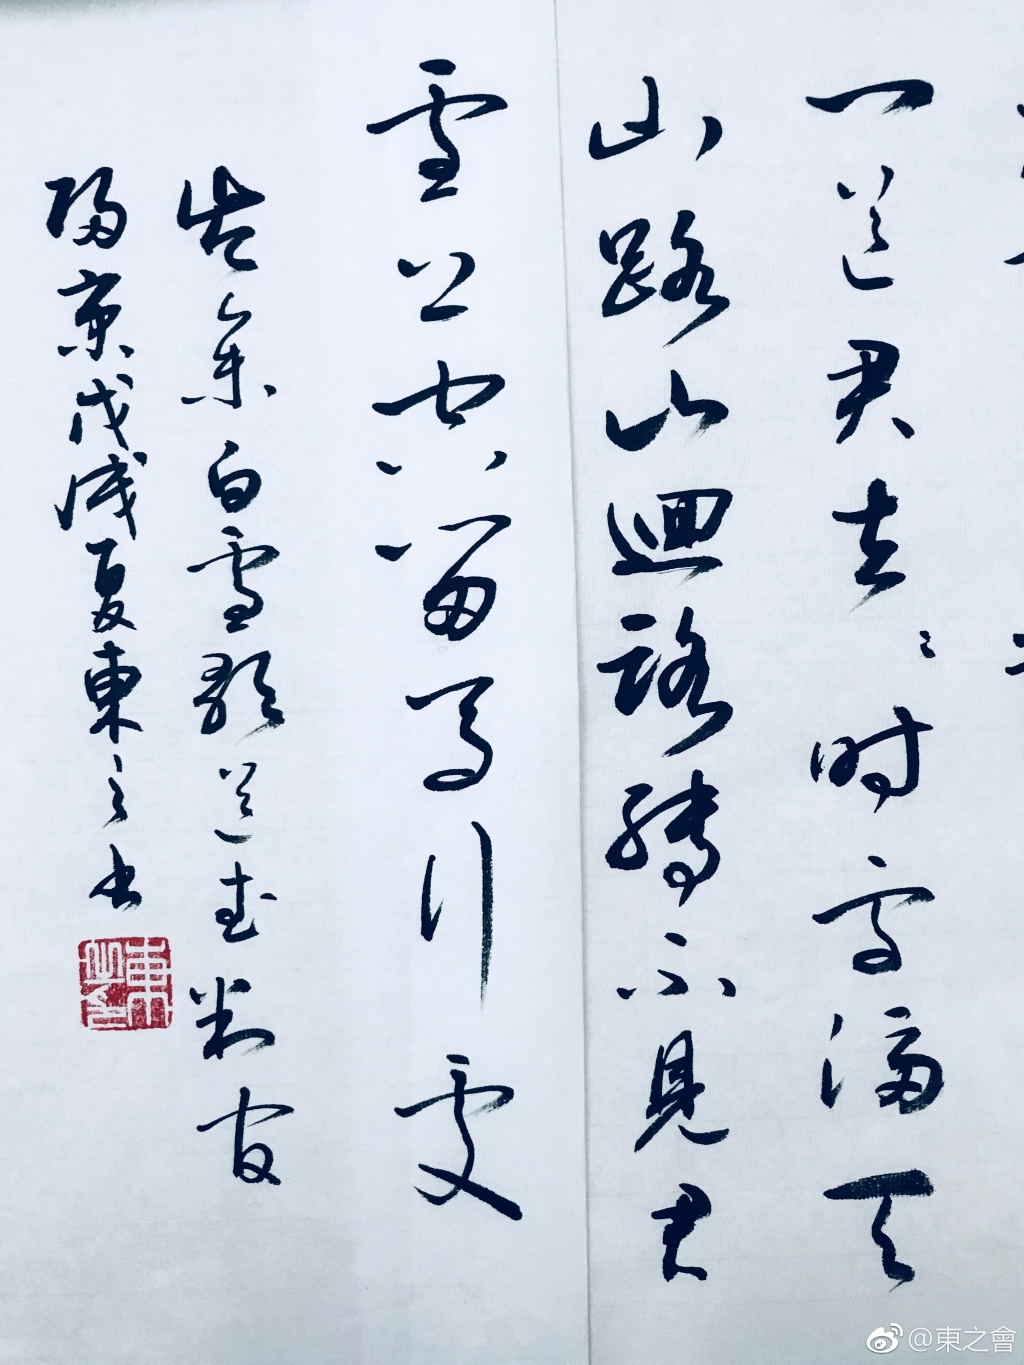 门送君去々时雪满天
山路山迴路轉不見君
雪上空留马行處
岑参白雪歌送武判官
歸京戊戌夏東之书
@東之會